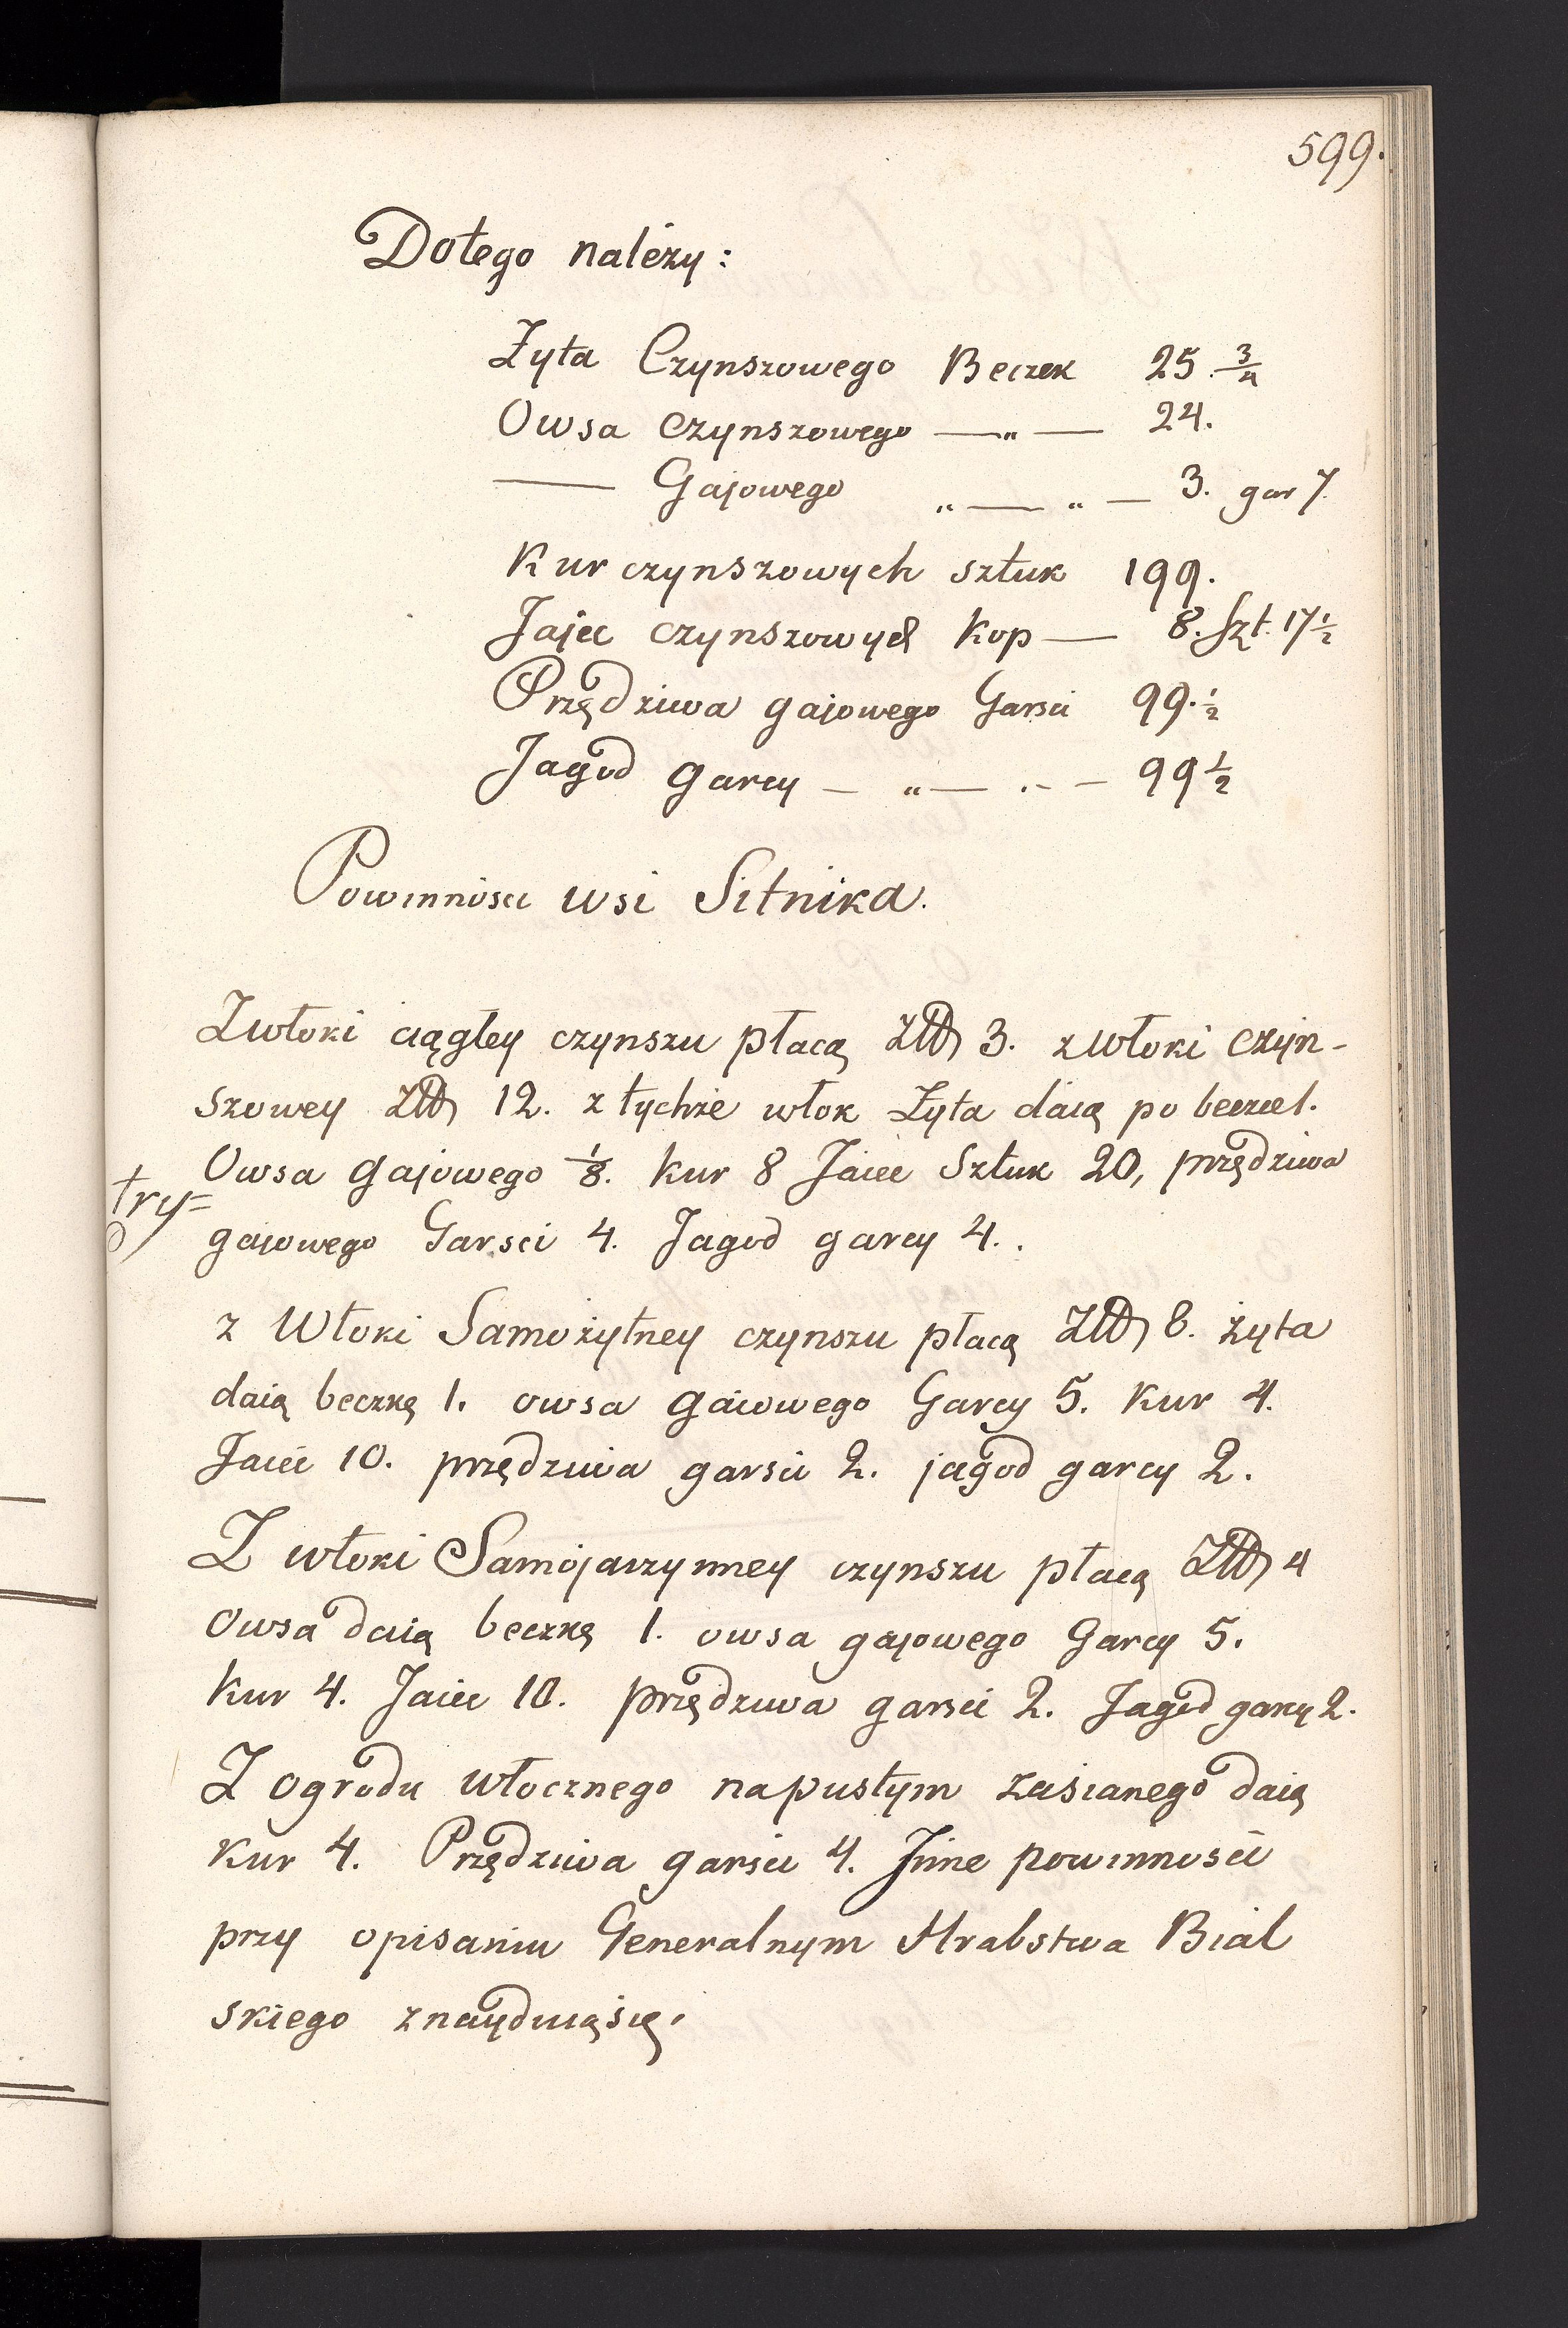 599.
Dotego należy:
Żyta Czynszowego Beczek 25. 3/4
Owsa czynszowego —„— 24.
— Gajowego „— „ — 3. gar 7.
Kur czynszowych sztuk 199.
Jajec czynszowych Kop — 8. Szt. 17 1/2
Przędziwa gajowego Garsci 99. 1/2
Jagod garcy — „— .- — 99 1/2
Powinnosci wsi Sitnika.
Zwłoki ciągley czynszu płacą Złł 3. zwłoki czyn-
szowey Złł 12. z tychże włok Żyta daią po beczce 1.
Owsa gajowego 1/8. kur 8 Jaiec Sztuk 20, przędziwa
try=
gajowego Garsci 4. Jagod garcy 4..
z Włoki Samożytney czynszu płacą Złł 8. żyta
daią beczkę 1. owsa gaiowego Garcy 5. Kur 4.
Jaiec 10. przędziwa garsci 2. jagod garcy 2.
Z włoki Samojarzynney czynszu płacą Złł 4
Owsa daią beczkę 1. owsa gajowego Garcy 5.
kur 4. Jaiec 10. przędziwa garsci 2. Jagod garcy 2.
Z ogrodu włocznego napustym zasianego daią
kur 4. Przędziwa garsci 4. Jnne powinnosci
przy opisaniu Generalnym Hrabstwa Bial
skiego znayduiąsię.